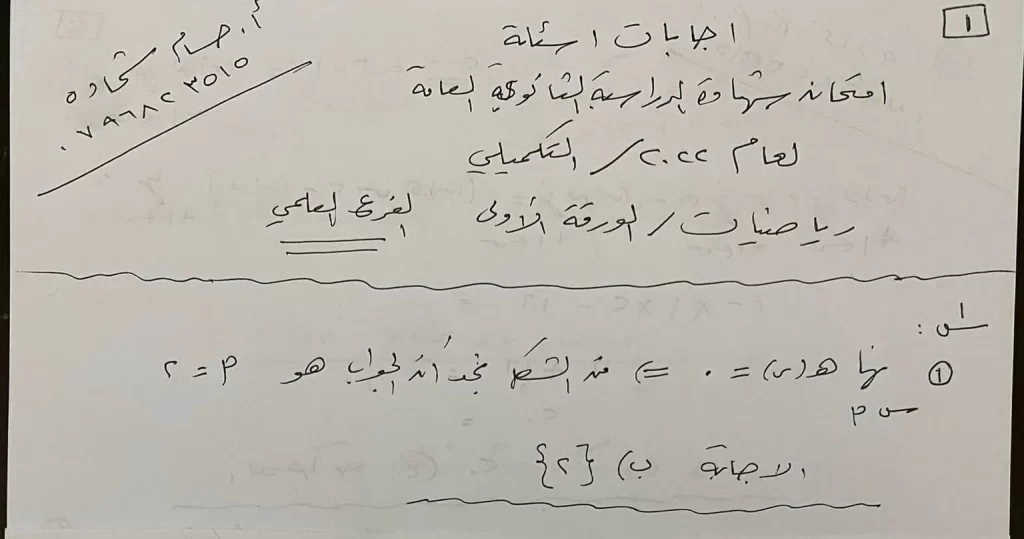 ١
اجابات اسئلة
امتحان شهادة الدراسة الثانوية العامة
لعام ٢٠٢٢ / التكميلي
رياضيات / الورقة الأولى الفرع العلمي
أ. حسام شحاده
٠٧٩٦٨٢٣٥١٥
س١:
① نها هـ(س) = ٠ ⇐ من الشكل نجد أن الجواب هو م = ٢
س م
الاجابة ب) {٢}